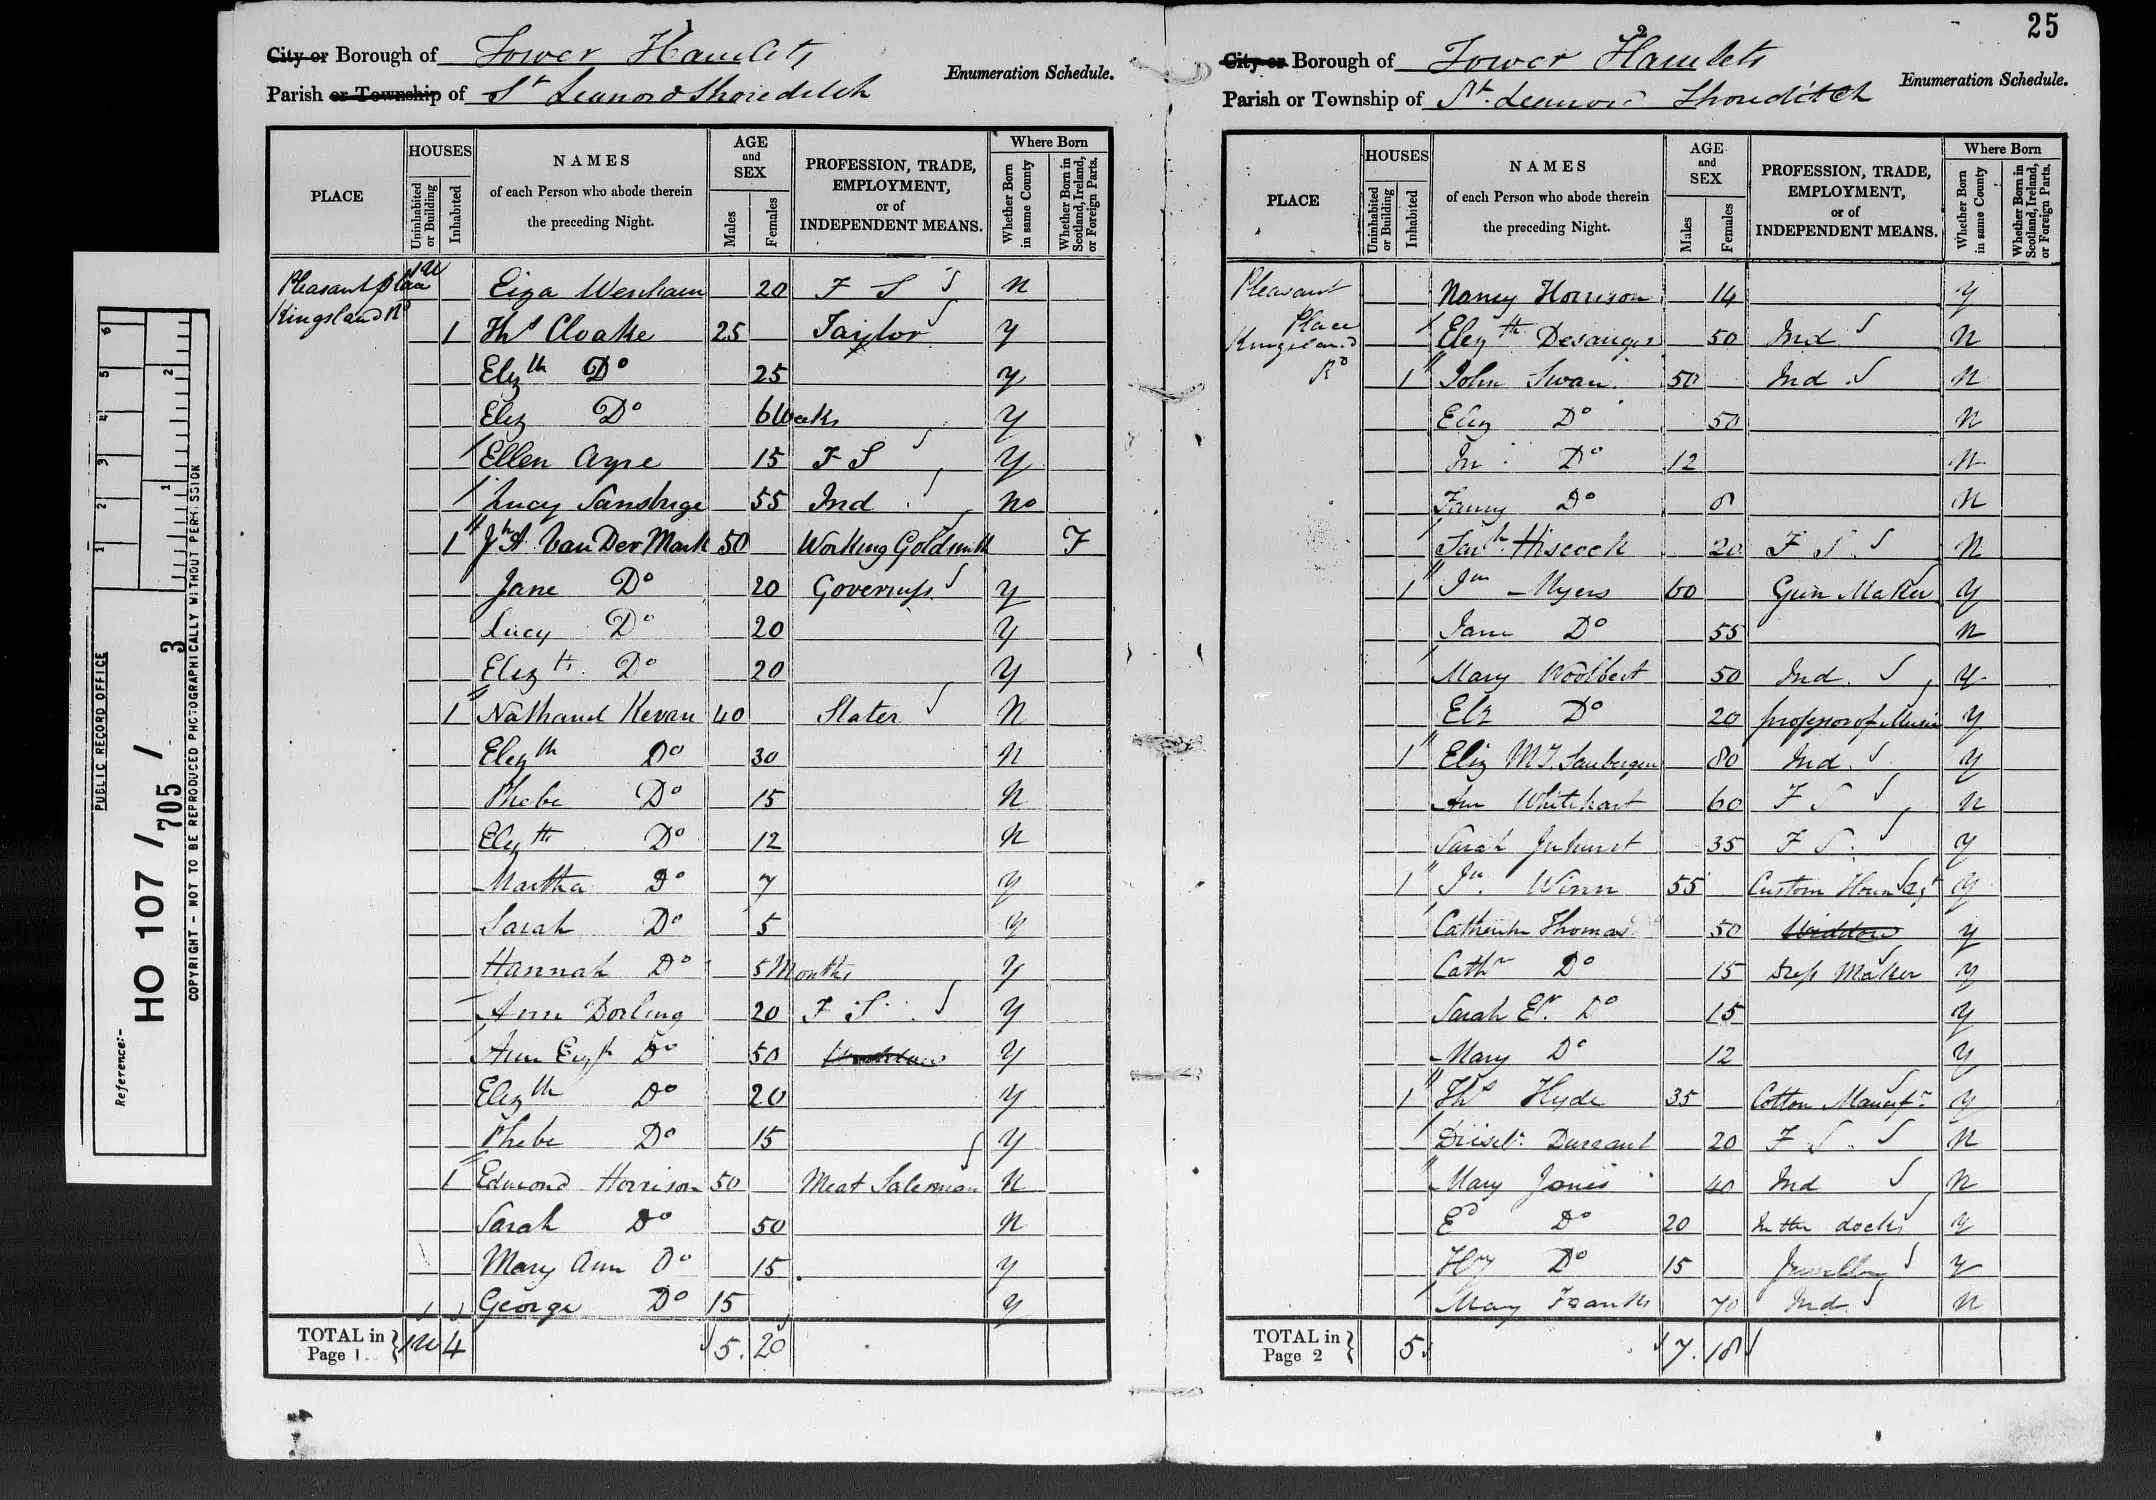 1
City or Borough of Tower Hamlets
Enumeration Schedule.
Parish or Township of St Leonard Shoreditch
PLACE
HOUSES
Uninhabited or Building
Inhabited
NAMES
of each Person who abode therein
the preceding Night.
AGE and SEX
Males
Females
PROFESSION, TRADE, EMPLOYMENT, or of INDEPENDENT MEANS.
Where Born
Whether Born in same County
Whether Born in Scotland, Ireland, or Foreign Parts.
Pleasant place 1U Eiza Wenham 20 F S N
Kingsland Rd 1 Ths Cloake 25 Taylor Y
Elizth Do 25 Y
Eliz Do 6 Weeks Y
Ellen Ayre 15 F S Y
Lucy Sansbrige 55 Ind No
1 Jn A. Van Der Mark 50 Working Goldsmith F
Jane Do 20 Governess Y
Lucy Do 20 Y
Elizth Do 20 Y
1 Nathanel Kevan 40 Slater N
Elizth Do 30 N
Phebe Do 15 N
Elizth Do 12 N
Martha Do 7 Y
Sarah Do 5 Y
Hannah Do 5 Months Y
Ann Dorling 20 F S Y
Ann Do 50 Y
Elizth Do 20 Y
Phebe Do 15 Y
1 Edmond Horrison 50 Meat Salesman N
Sarah Do 50 N
Mary Ann Do 15 Y
George Do 15 Y
TOTAL in Page 1 1U 4 5. 20
2
25
City or Borough of Tower Hamlets
Enumeration Schedule.
Parish or Township of St. Leonard Shoreditch
PLACE
HOUSES
Uninhabited or Building
Inhabited
NAMES
of each Person who abode therein
the preceding Night.
AGE and SEX
Males
Females
PROFESSION, TRADE, EMPLOYMENT, or of INDEPENDENT MEANS.
Where Born
Whether Born in same County
Whether Born in Scotland, Ireland, or Foreign Parts.
Pleasant Nancy Horrison 14 Y
Place Kingsland Elizth Desanges 50 Ind N
Rd 1 John Swan 50 Ind N
Eliz Do 50 N
Jn Do 12 N
Fanny Do 8 N
Sarh Hiscock 20 F S N
1 Jno Myers 60 Gun Maker Y
Jane Do 55 N
Mary Woolbert 50 Ind. Y
Elz Do 20 professor of Music Y
1 Eliz 80 Ind Y
Ann Whitehart 60 F S N
Sarah 35 F S Y
1 Jn. Winn 55 Custom House Agt Y
Catherine Thomas 50 Widdow Y
Cathe Do 15 Dress Maker Y
Sarah Er. Do 15 Y
Mary Do 12 Y
1 Ths Hyde 35 Cotton Manufr. Y
Durrant 20 F S N
Mary Jones 40 Ind N
Ed Do 20 In the docks Y
Hy Do 15 Jewellery Y
Mary Franks 70 Ind N
TOTAL in Page 2 5 7. 18
PUBLIC RECORD OFFICE
1 2 3 4 5 6
1 2
Reference:-
HO 107 / 705 / 3
COPYRIGHT - NOT TO BE REPRODUCED PHOTOGRAPHICALLY WITHOUT PERMISSION